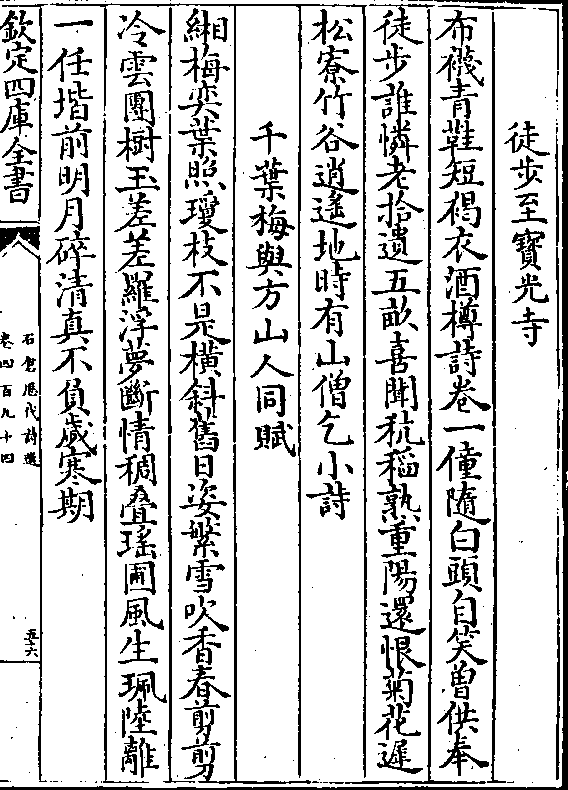 徒步至寶光寺
布襪青鞋短褐衣酒樽詩卷一僮隨白頭自笑曽供奉
徒步誰憐老拾遺五畝喜聞秔稻熟重陽還恨菊花遲
松寮竹谷逍遥地時有山僧乞小詩
千葉梅與方山人同賦
緗梅奕葉照瓊枝不是横斜舊日姿繁雪吹香春剪剪
冷雲團樹玉差差羅浮夢斷情稠叠瑶圃風生珮陸離
一任堦前明月碎清真不負歲寒期
欽定四庫全書
石倉歴代詩選
卷四百九十四
五六